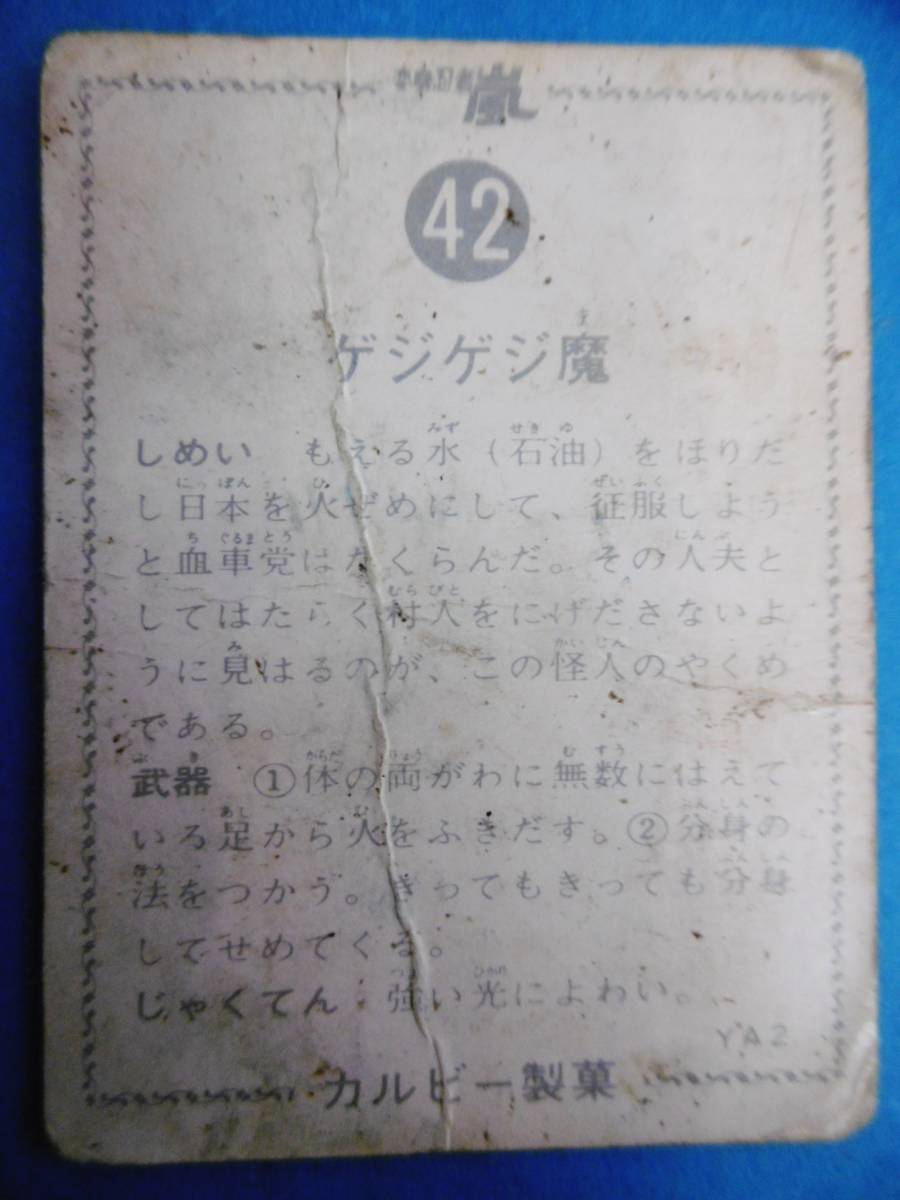 変身忍者
嵐
42
ゲジゲジ魔
しめい もえる水(石油)をほりだ
し日本を火ぜめにして、征服しよう
と血車党はたくらんだ。その人夫と
してはたらく村人をにげださないよ
うに見はるのが、この怪人のやくめ
である。
武器 ①体の両がわに無数にはえて
いる足から火をふきだす。②分身の
法をつかう。きってもきっても分身
してせめてくる。
じゃくてん 強い光によわい。
YA2
カルビー製菓